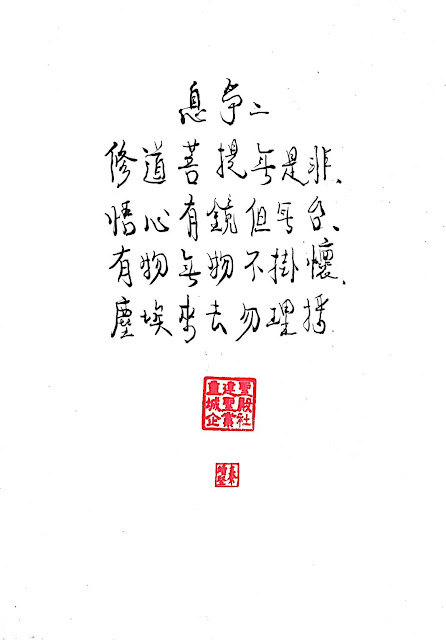 息爭二
修道菩提無是非、
悟心有鏡但無台、
有物無物不掛懷、
塵埃來去勿理
聖殿社
建聖
城企